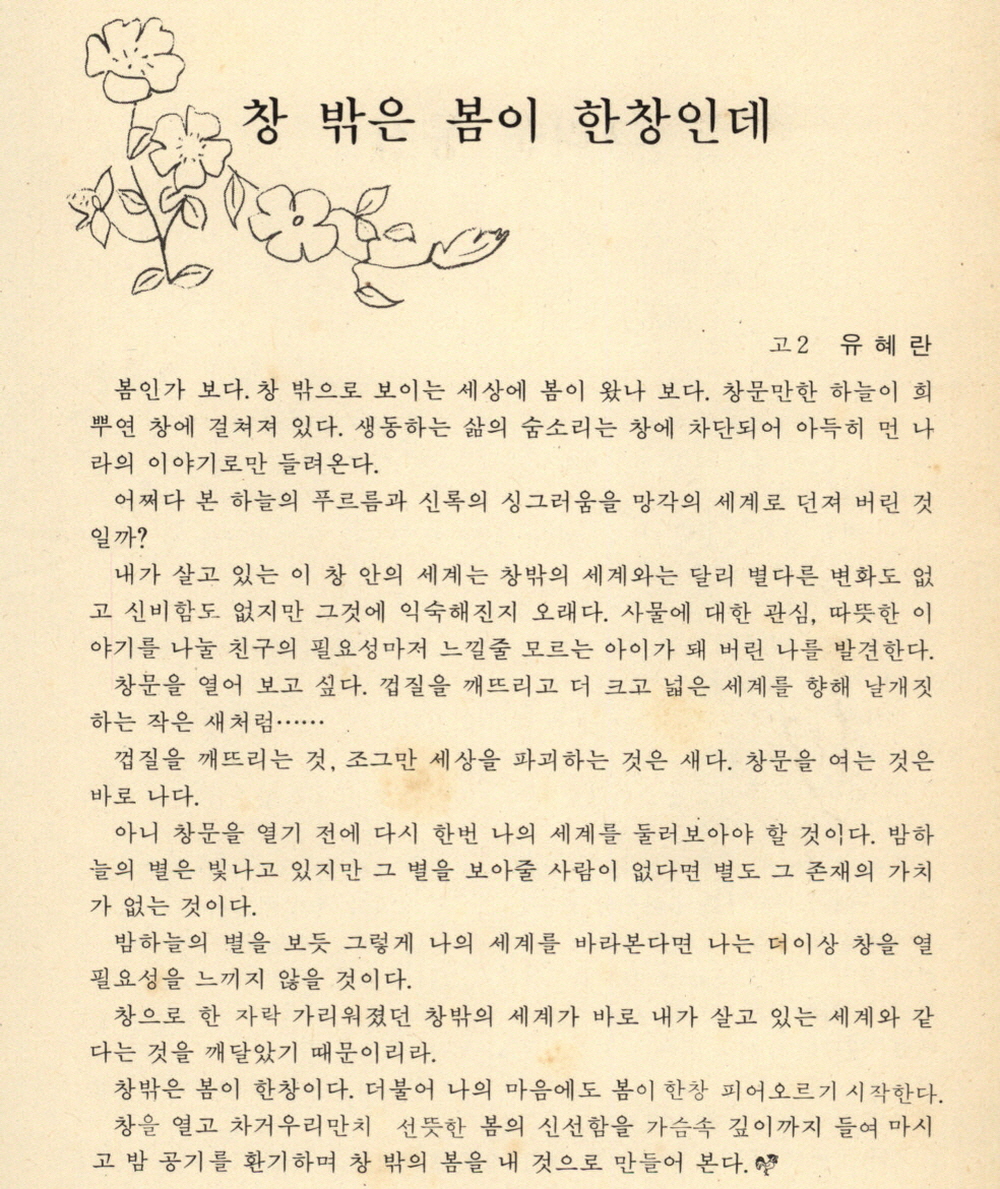 창 밖은 봄이 한창인데
고2 유혜란
봄인가 보다. 창 밖으로 보이는 세상에 봄이 왔나 보다. 창문만한 하늘이 희
뿌연 창에 걸쳐져 있다. 생동하는 삶의 숨소리는 창에 차단되어 아득히 먼 나
라의 이야기로만 들려온다.
어쩌다 본 하늘의 푸르름과 신록의 싱그러움을 망각의 세계로 던져 버린 것
일까?
내가 살고 있는 이 창 안의 세계는 창밖의 세계와는 달리 별다른 변화도 없
고 신비함도 없지만 그것에 익숙해진지 오래다. 사물에 대한 관심, 따뜻한 이
야기를 나눌 친구의 필요성마저 느낄줄 모르는 아이가 돼 버린 나를 발견한다.
창문을 열어 보고 싶다. 껍질을 깨뜨리고 더 크고 넓은 세계를 향해 날개짓
하는 작은 새처럼……
껍질을 깨뜨리는 것, 조그만 세상을 파괴하는 것은 새다. 창문을 여는 것은
바로 나다.
아니 창문을 열기 전에 다시 한번 나의 세계를 둘러보아야 할 것이다. 밤하
늘의 별은 빛나고 있지만 그 별을 보아줄 사람이 없다면 별도 그 존재의 가치
가 없는 것이다.
밤하늘의 별을 보듯 그렇게 나의 세계를 바라본다면 나는 더이상 창을 열
필요성을 느끼지 않을 것이다.
창으로 한 자락 가리워졌던 창밖의 세계가 바로 내가 살고 있는 세계와 같
다는 것을 깨달았기 때문이리라.
창밖은 봄이 한창이다. 더불어 나의 마음에도 봄이 한창 피어오르기 시작한다.
창을 열고 차거우리만치 선뜻한 봄의 신선함을 가슴속 깊이까지 들여 마시
고 밤 공기를 환기하며 창 밖의 봄을 내 것으로 만들어 본다.